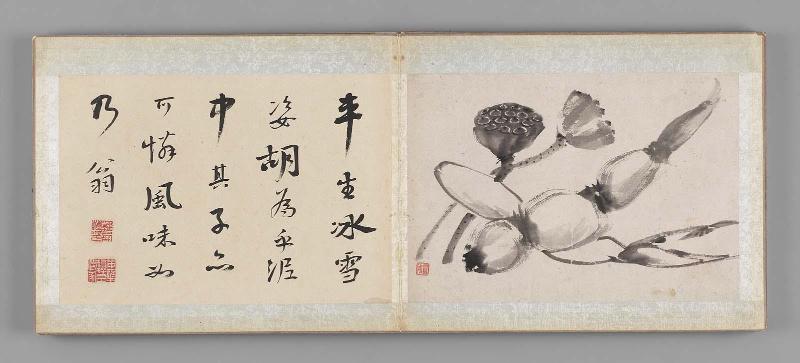 平生冰雪
姿胡為乎泥
中其子亦
可憐風味如
乃翁